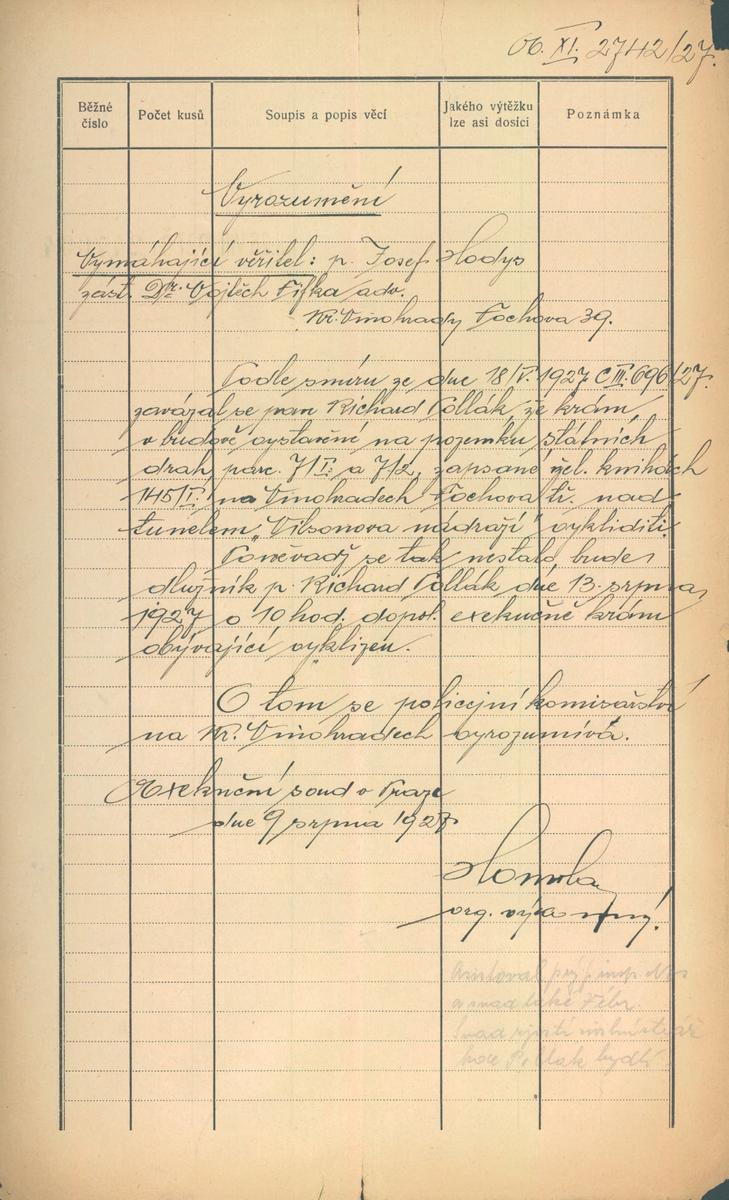 XI. 2742/27.
Běžné číslo
Počet kusů
Soupis a popis věcí
Jakého výtěžku lze asi dosíci
Poznámka
Vyrozumění
Vymáhající věřitel: p. Josef Hodys
zást. Dr. Vojtěch Fifka adv.
Kr. Vinohrady Fochova 39.
Podle smíru ze dne 18/V. 1927 C III. 696/27.
zavázal se pan Richard Pollák, že krám,
v budově vystavění na pozemku státních
drah parc. 7/I. a 7/2, zapsané žel. knihách
145/I. na Vinohradech Fochova tř. nad
tunelem „Vilsonova nádraží" vykliditi.
Poněvadž se tak nestalo bude
dlužník p. Richard Pollák dne 13. srpna,
1927 o 10 hod. dopol. exekučně krám
obývající vyklizen.
O tom se policejní komisařství
na Kr. Vinohradech vyrozumívá.
Exekuční soud v Praze
dne 9 srpna 1927
org. výkonný.
Asistoval insp.
a snad také
Snad zjistí
kde Pollak bydlí